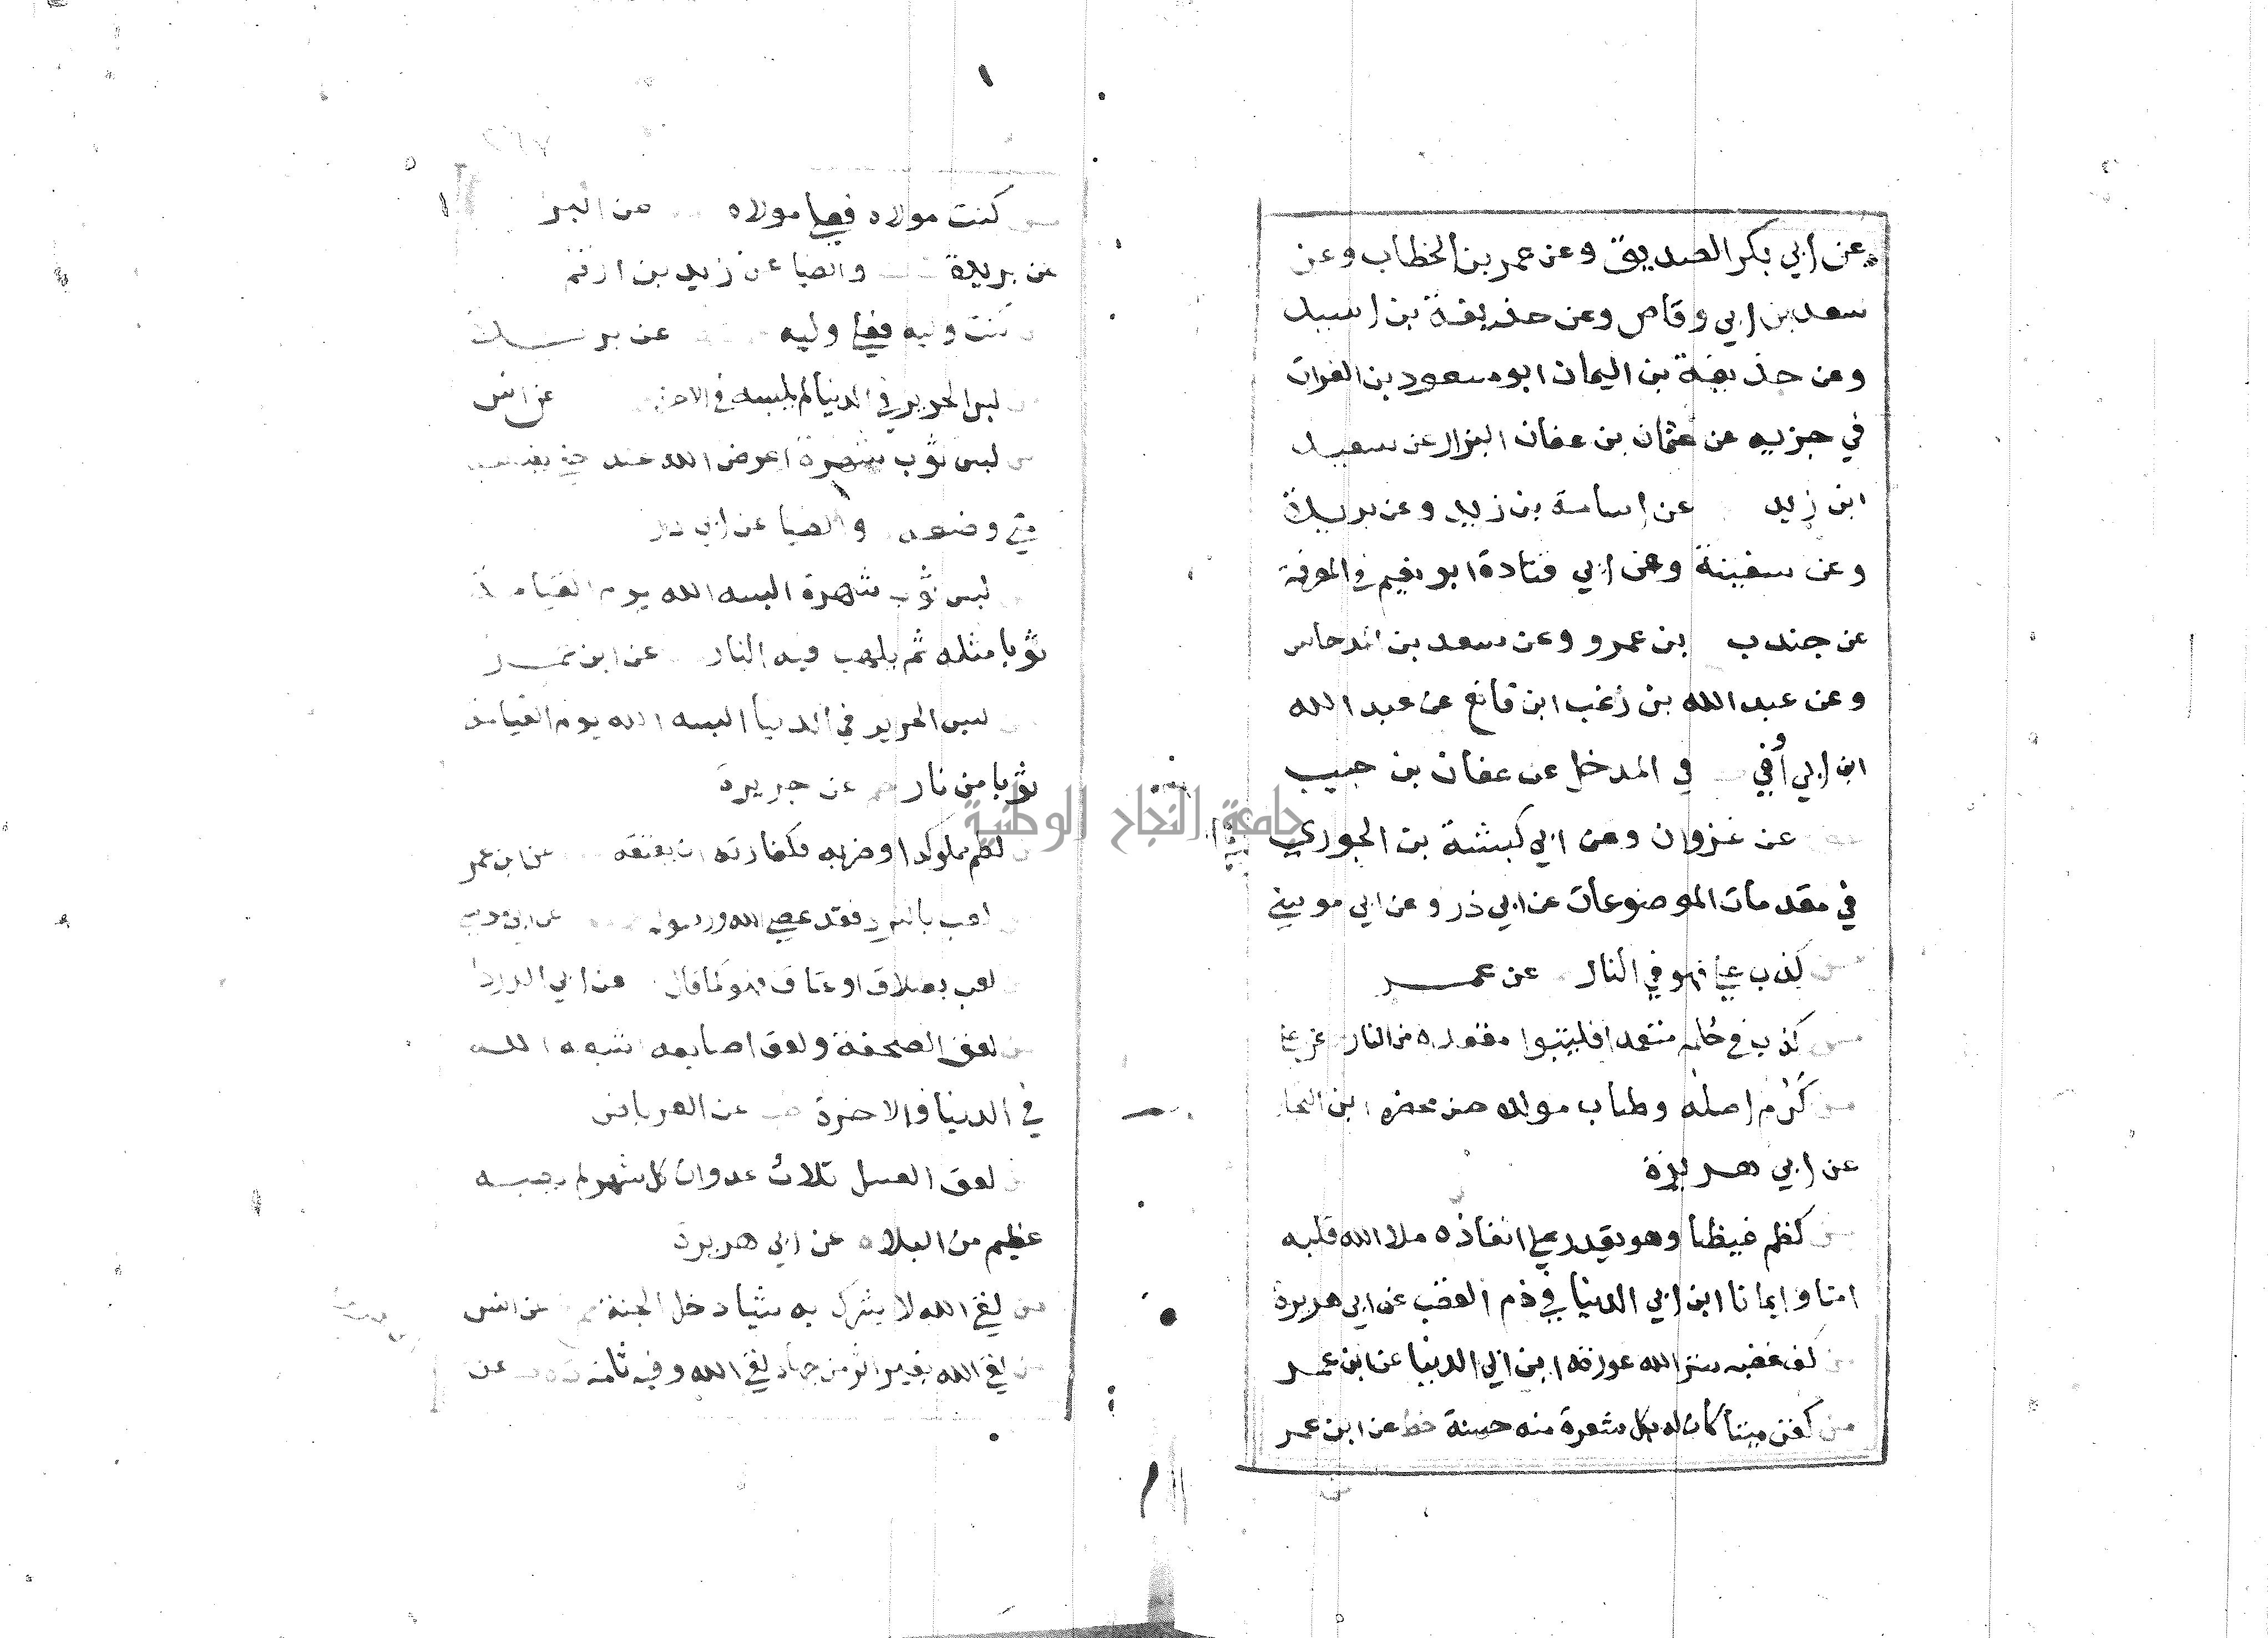 عن ابي بكر الصديق وعن عمر بن الخطاب وعن
سعد بن ابي وقاص وعن حذيفة بن اسيد
وعن حذيفة بن اليمان ابو مسعود بن الفرات
في جزيه عن عثمان بن عفان البزار عن سعيد
ابن زيد عن اسامة بن زيد وعن بريدة
وعن سفينة وعن ابي قتادة ابو نعيم في المعرفة
عن جندب بن عمرو وعن سعد بن المدحاس
وعن عبد الله بن زغب ابن قانع عن عبد الله
ابن ابي أوفي في المدخل عن عفان بن حبيب
عن غزوان وعن ابي كبشة بن الجوزي
في مقدمات الموضوعات عن ابي ذر وعن ابي موسي
من كذب علي فهو في النار عن عمر
من كذب في حلمه متعمدا فليتبوا مقعده من النار عن علي
من كَرُم اصله وطاب مولده حسن محضره ابن النجار
عن ابي هريرة
من كظم غيظا وهو يقدر علي انفاذه ملا الله قلبه
امنا وايمانا ابن ابي الدنيا في ذم الغضب عن ابي هريرة
من كف غضبه ستر الله عورته ابن ابي الدنيا عن ابن عمر
من كفن ميتا كان له بكل شعرة منه حسنة خط عن ابن عمر
من كنت مولاه فعلي مولاه عن البرا
عن بريدة والضيا عن زيد بن ارقم
من كنت وليه فعلي وليه عن بريدة
من لبس الحرير في الدنيا لم يلبسه في الاخرة عن انس
من لبس ثوب شهرة اعرض الله عنه حتي يضعه
متي وضعه والضيا عن ابي ذر
من لبس ثوب شهرة البسه الله يوم القيامة
ثوبا مثله ثم يلهب فيه النار عن ابن عمر
من لبس الحرير في الدنيا البسه الله يوم القيامة
ثوبا من نار حم عن جريرة
من لطم مملوكه او ضربه فكفارته ان يعتقه عن ابن عمر
من لعب بالنرد فقد عصي الله ورسوله عن ابي موسي
من لعب بطلاق او عتاق فهو كما قال عن ابي الدردا
من لعق الصحفة ولعق اصابعه اشبعه الله
في الدنيا والاخرة طب عن العرباض
من لعق العسل ثلاث غدوات كل شهر لم يصبه
عظيم من البلاء عن ابي هريرة
من لقي الله لا يشرك به شيا دخل الجنة عن انس
من لقي الله بغير اثر من جهاد لقي الله وفيه ثلمة عن
جامعة النجاح الوطنية